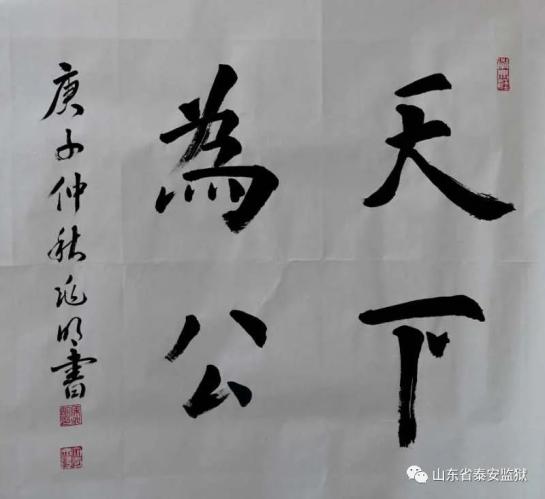 天下
為公
庚子仲秋兆明書
山东省泰安监狱